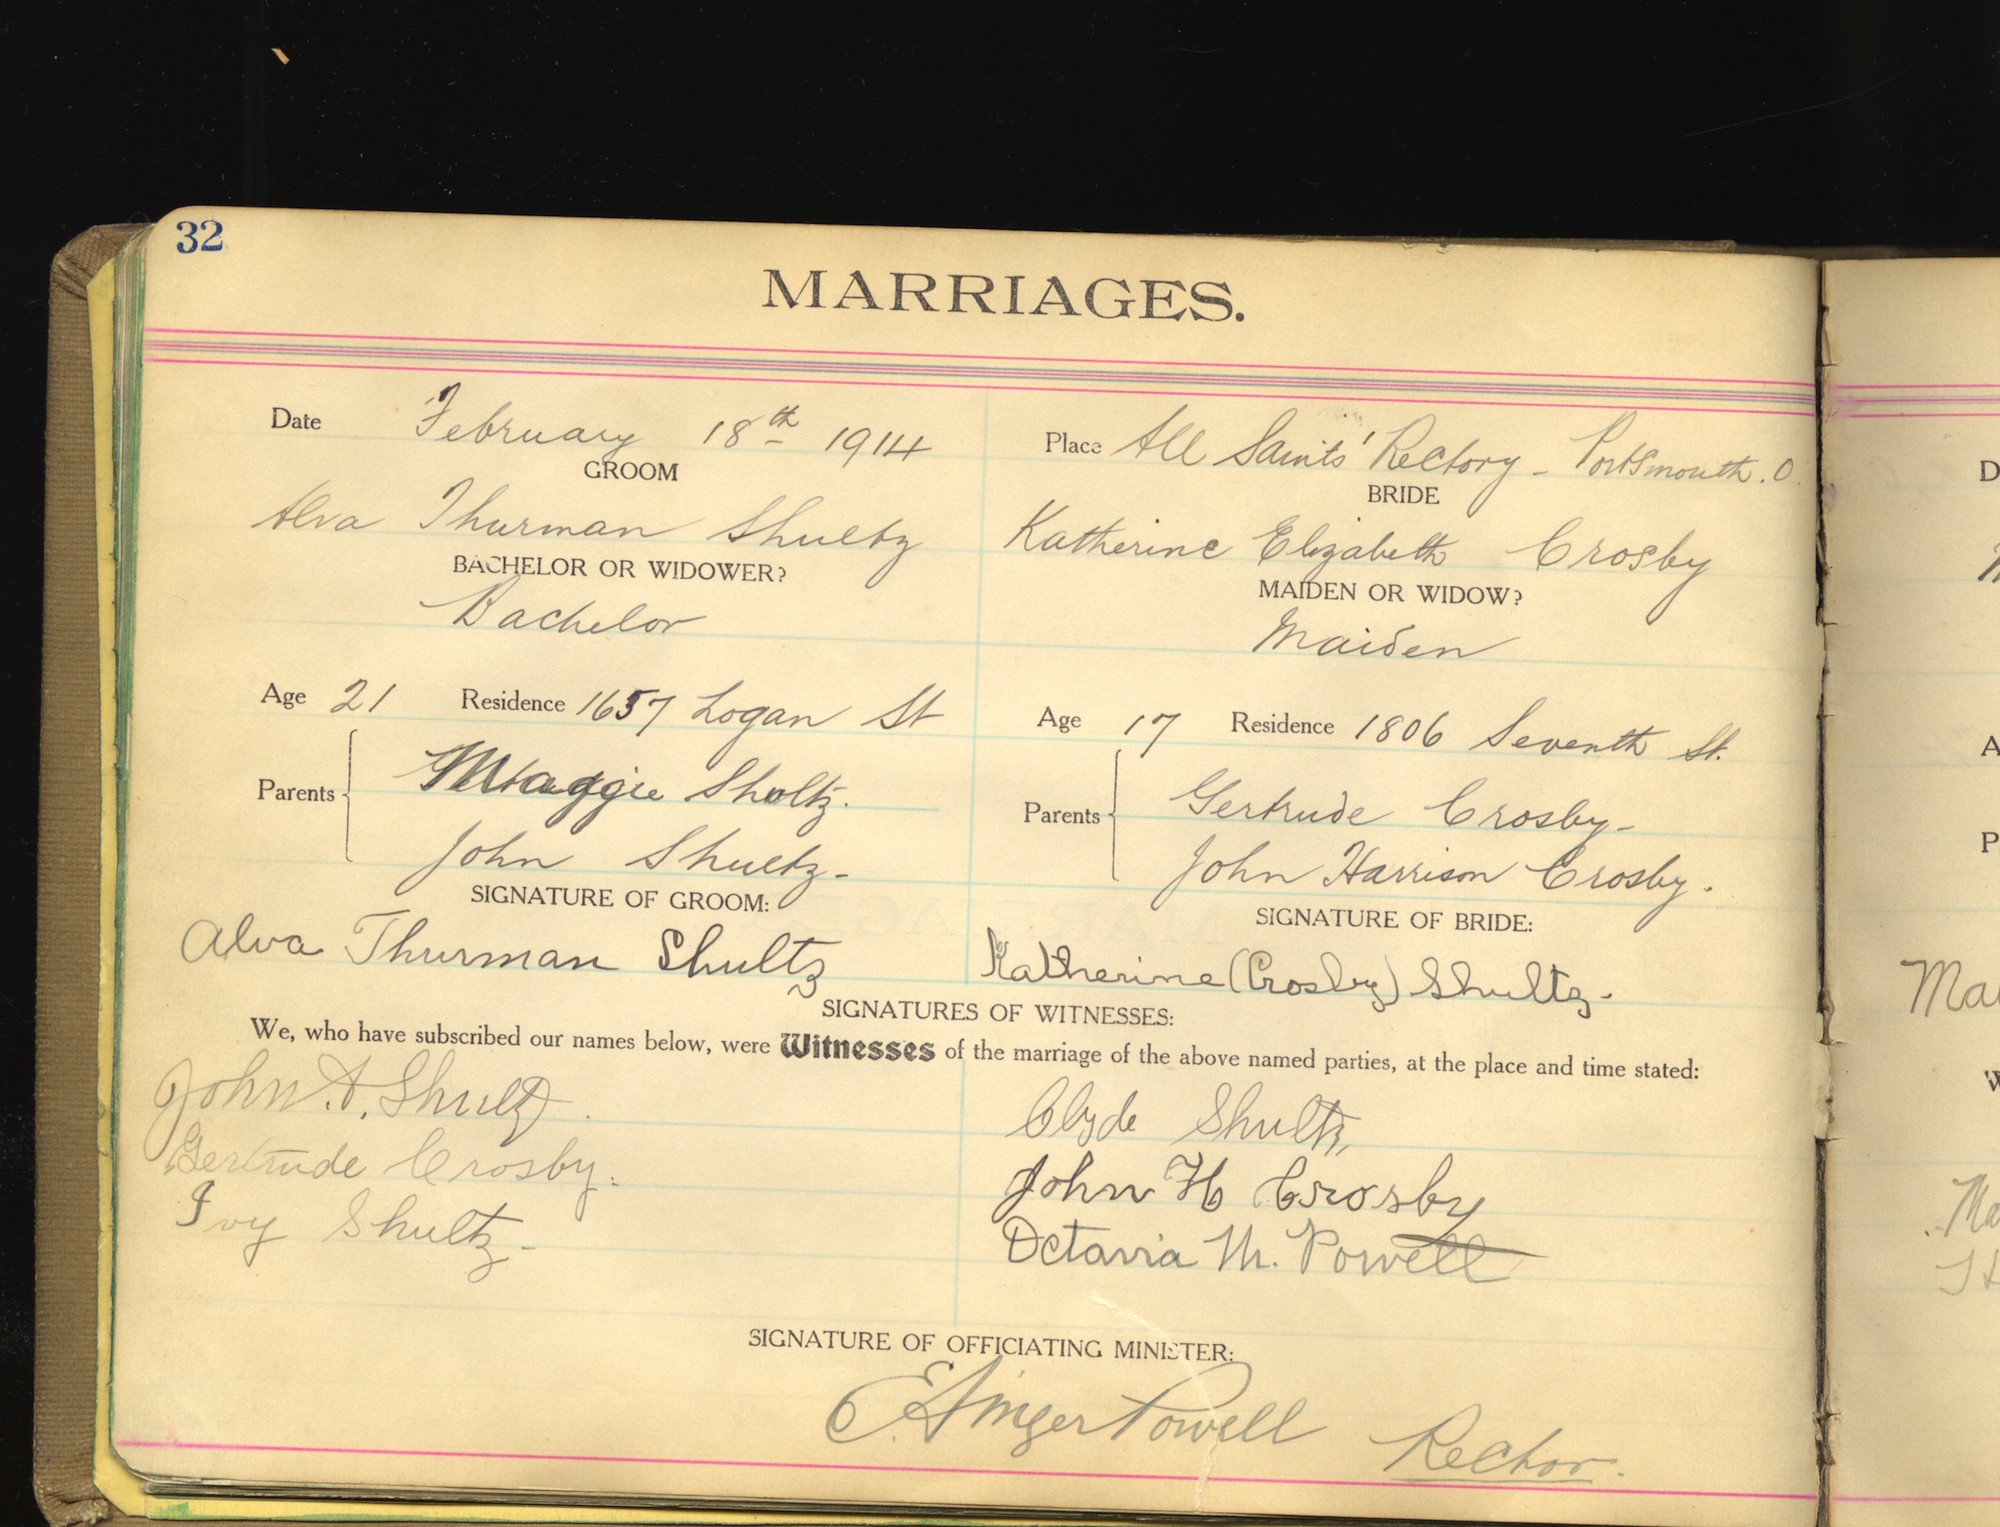 32
MARRIAGES.
Date February 18th 1914
Place All Saints' Rectory - Portsmouth. O.
GROOM
BRIDE
Alva Thurman Shultz
Katherine Elizabeth Crosby
BACHELOR OR WIDOWER?
MAIDEN OR WIDOW?
Bachelor
Maiden
Age 21 Residence 1657 Logan St
Age 17 Residence 1806 Seventh St.
Parents
Maggie Sholtz.
John Shultz-
Parents
Gertrude Crosby-
John Harrison Crosby.
SIGNATURE OF GROOM:
SIGNATURE OF BRIDE:
Alva Thurman Shultz
Katherine (Crosby) Shultz-
SIGNATURES OF WITNESSES:
We, who have subscribed our names below, were Witnesses of the marriage of the above named parties, at the place and time stated:
John. A. Shultz.
Clyde Shultz,
Gertrude Crosby.
John H Crosby
Ivy Shultz-
Octavia M. Powell
SIGNATURE OF OFFICIATING MINISTER:
E. Ainger Powell Rector.